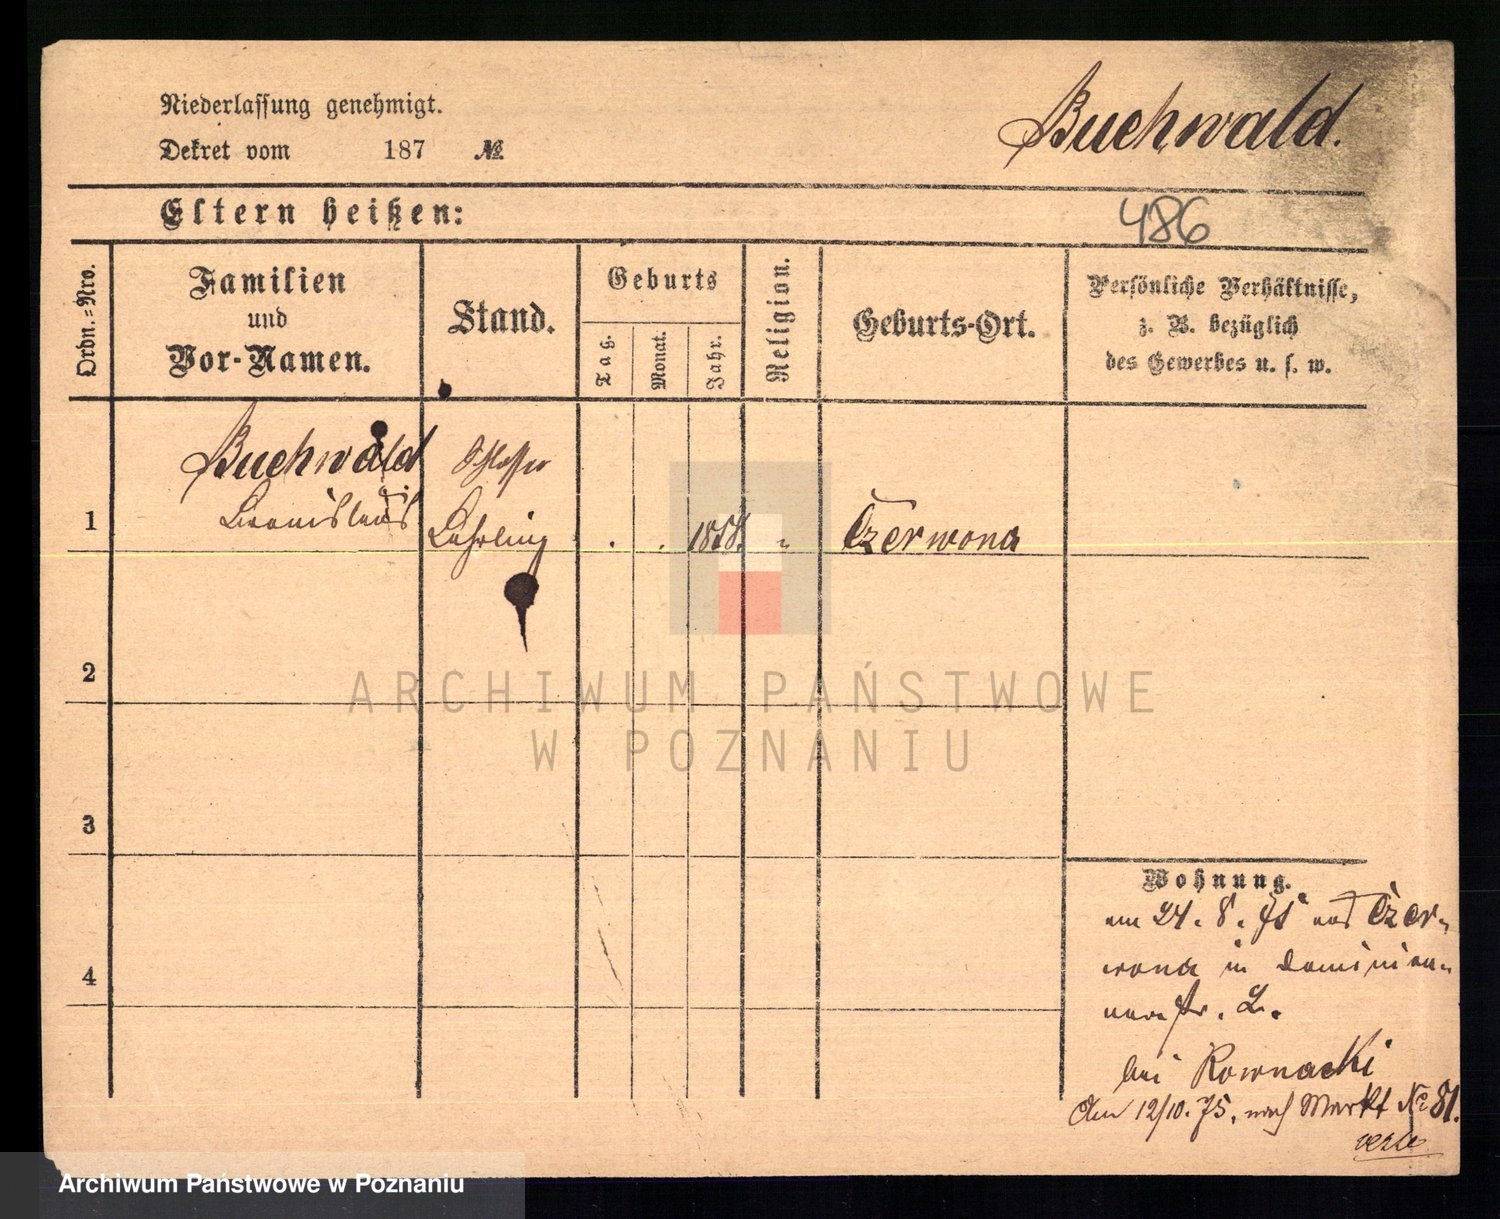 Niederlassung genehmigt.
Dekret vom 187 №
Buchwald.
Eltern heißen:
486
Ordn.=Nro.
Familien
und
Vor-Namen.
Stand.
Geburts
Tag.
Monat.
Jahr.
Religion.
Geburts-Ort.
Persönliche Verhältnisse,
z. B. bezüglich
des Gewerbes u. s. w.
1
Buchwald
Bronislaus
Schlosser
Lehrling
. . 1858. "
Czerwona
2
3
4
ARCHIWUM PAŃSTWOWE
W POZNANIU
Wohnung.
am 24. 8. 75 aus Czer-
wona in Dominica-
nerstr. 2.
bei Rownacki
Am 12/10. 75. nach Markt № 81.
Archiwum Państwowe w Poznaniu